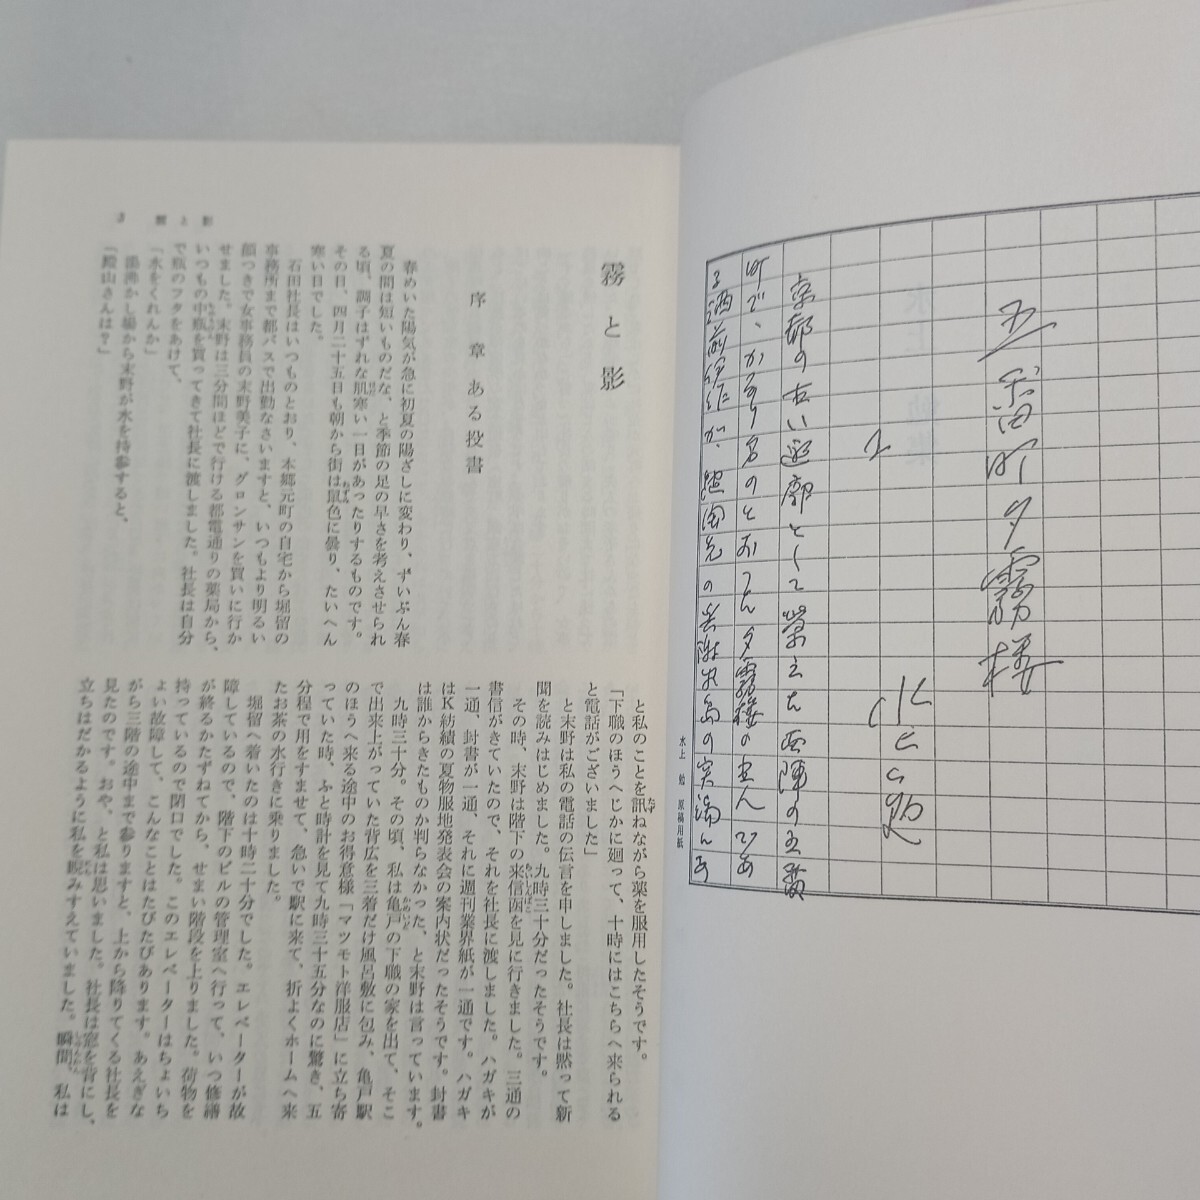 五番町夕霧楼
水上勉
1
京都の古い遊廓として栄えた西陣の五番
町で、かなり名のとおってん夕霧楼の主んである
酒前伊作が、疎開先の与謝
水上 勉 原稿用紙
3 霧と影
霧と影
序章 ある投書
春めいた陽気が急に初夏の陽ざしに変わり、ずいぶん春
夏の間は短いものだな、と季節の足の早さを考えさせられ
る頃、調子はずれな肌寒い一日があったりするものです。
その日、四月二十五日も朝から街は鼠色に曇り、たいへん
寒い日でした。
石田社長はいつものとおり、本郷元町の自宅から堀留の
事務所まで都バスで出勤なさいますと、いつもより明るい
顔つきで女事務員の末野美子に、グロンサンを買いに行か
せました。末野は三分間ほどで行ける都電通りの薬局から、
いつもの中瓶を買ってきて社長に渡しました。社長は自分
で瓶のフタをあけて、
「水をくれんか」
湯沸かし場から末野が水を持参すると、
「殿山さんは？」
と私のことを訊ねながら薬を服用したそうです。
「下職のほうへじかに廻って、十時にはこちらへ来られる
と電話がございました」
と末野は私の電話の伝言を申しました。社長は黙って新
聞を読みはじめました。九時三十分だったそうです。
その時、末野は階下の来信函を見に行きました。三通の
書信がきていたので、それを社長に渡しました。ハガキが
一通、封書が一通、それに週刊業界紙が一通です。ハガキ
はK紡績の夏物服地発表会の案内状だったそうです。封書
は誰からきたものか判らなかった、と末野は言っています。
九時三十分。その頃、私は亀戸の下職の家を出て、そこ
で出来上がっていた背広を三着だけ風呂敷に包み、亀戸駅
のほうへ来る途中のお得意様「マツモト洋服店」に立ち寄
っていた時、ふと時計を見て九時三十五分なのに驚き、五
分程で用をすませて、急いで駅に来て、折よくホームへ来
たお茶の水行きに乗りました。
堀留へ着いたのは十時二十分でした。エレベーターが故
障しているので、階下のビルの管理室へ行って、いつ修繕
が終るかたずねてから、せまい階段を上りました。荷物を
持っているので閉口でした。このエレベーターはちょいち
ょい故障して、こんなことはたびたびあります。あえぎな
がら三階の途中まで参りますと、上から降りてくる社長を
見たのです。おや、と私は思いました。社長は窓を背にし、
立ちはだかるように私を睨みすえていました。瞬間、私は